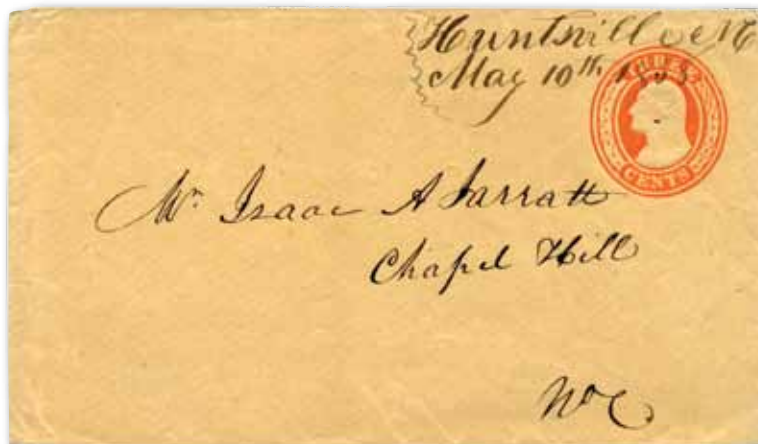 Huntsville NC
May 10th
THREE
CENTS
Mr. Isaac A Jarratt
Chapel Hill
No C